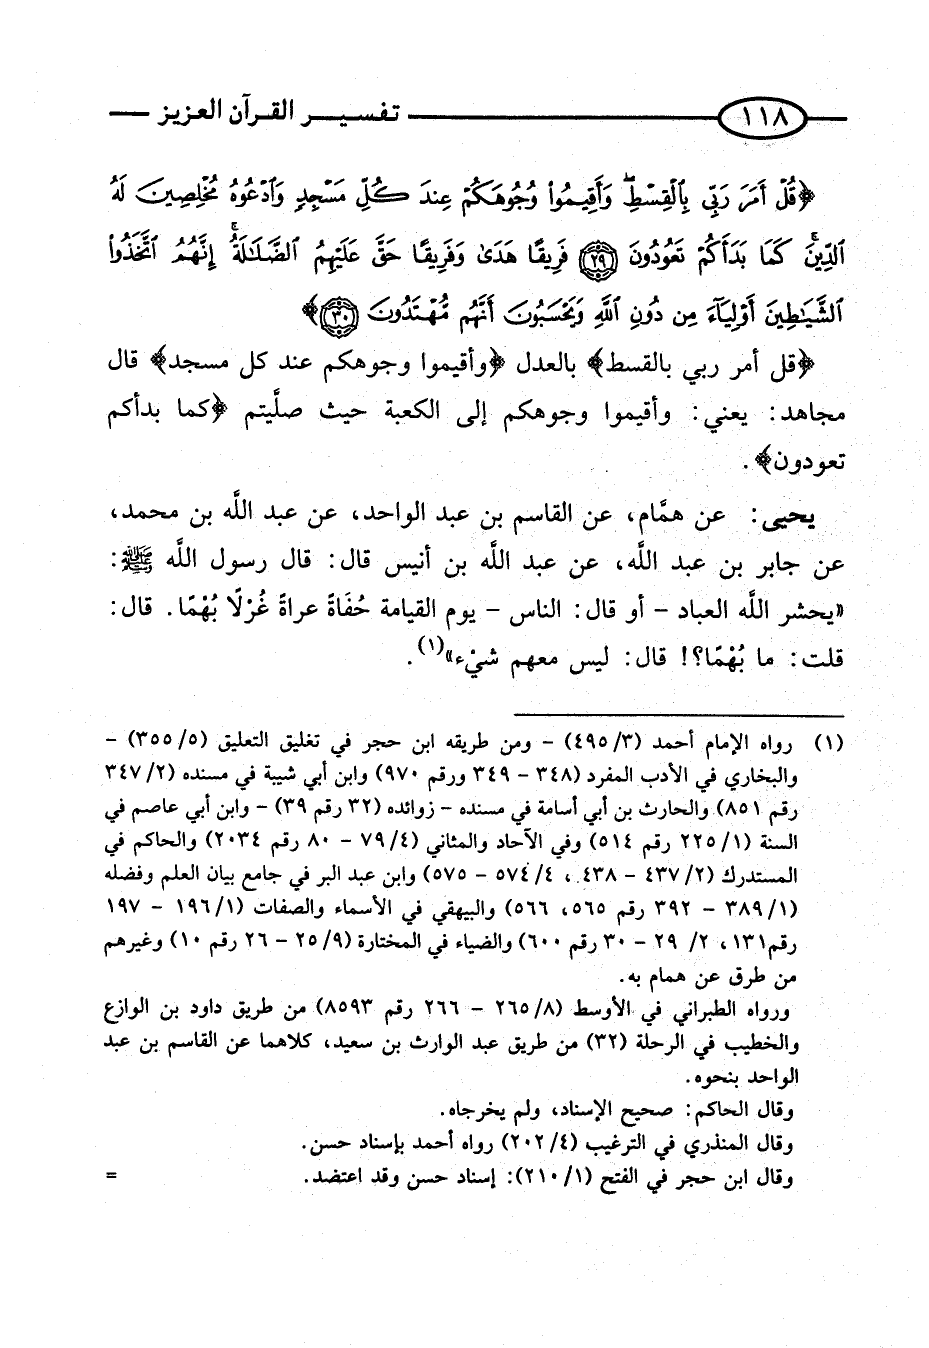 ١١٨ تفسير القرآن العزيز
﴿قُلْ أَمَرَ رَبِّي بِالْقِسْطِ وَأَقِيمُوا وُجُوهَكُمْ عِندَ كُلِّ مَسْجِدٍ وَادْعُوهُ مُخْلِصِينَ لَهُ
الدِّينَ كَمَا بَدَأَكُمْ تَعُودُونَ ٢٩ فَرِيقًا هَدَىٰ وَفَرِيقًا حَقَّ عَلَيْهِمُ الضَّلَالَةُ إِنَّهُمُ اتَّخَذُوا
الشَّيَاطِينَ أَوْلِيَاءَ مِن دُونِ اللَّهِ وَيَحْسَبُونَ أَنَّهُم مُّهْتَدُونَ ٣٠﴾
﴿قل أمر ربي بالقسط﴾ بالعدل ﴿وأقيموا وجوهكم عند كل مسجد﴾ قال
مجاهد: يعني: وأقيموا وجوهكم إلى الكعبة حيث صلَّيتم ﴿كما بدأكم
تعودون﴾.
يحيى: عن همَّام، عن القاسم بن عبد الواحد، عن عبد اللَّه بن محمد،
عن جابر بن عبد اللَّه، عن عبد اللَّه بن أنيس قال: قال رسول اللَّه ﷺ:
«يحشر اللَّه العباد - أو قال: الناس - يوم القيامة حُفَاةً عراةً غُرْلًا بُهْمًا. قال:
قلت: ما بُهْمًا؟! قال: ليس معهم شيْء»(١).
(١) رواه الإمام أحمد (٤٩٥/٣) - ومن طريقه ابن حجر في تغليق التعليق (٣٥٥/٥) -
والبخاري في الأدب المفرد (٣٤٨ - ٣٤٩ ورقم ٩٧٠) وابن أبي شيبة في مسنده (٣٤٧/٢
رقم ٨٥١) والحارث بن أبي أسامة في مسنده - زوائده (٣٢ رقم ٣٩) - وابن أبي عاصم في
السنة (٢٢٥/١ رقم ٥١٤) وفي الآحاد والمثاني (٧٩/٤ - ٨٠ رقم ٢٠٣٤) والحاكم في
المستدرك (٤٣٧/٢ - ٤٣٨، ٥٧٤/٤ - ٥٧٥) وابن عبد البر في جامع بيان العلم وفضله
(٣٨٩/١ - ٣٩٢ رقم ٥٦٥، ٥٦٦) والبيهقي في الأسماء والصفات (١٩٦/١ - ١٩٧
رقم١٣١، ٢/ ٢٩ - ٣٠ رقم ٦٠٠) والضياء في المختارة (٢٥/٩ - ٢٦ رقم ١٠) وغيرهم
من طرق عن همام به.
ورواه الطبراني في الأوسط (٢٦٥/٨ - ٢٦٦ رقم ٨٥٩٣) من طريق داود بن الوازع
والخطيب في الرحلة (٣٢) من طريق عبد الوارث بن سعيد، كلاهما عن القاسم بن عبد
الواحد بنحوه.
وقال الحاكم: صحيح الإسناد، ولم يخرجاه.
وقال المنذري في الترغيب (٢٠٢/٤) رواه أحمد بإسناد حسن.
وقال ابن حجر في الفتح (٢١٠/١): إسناد حسن وقد اعتضد. =